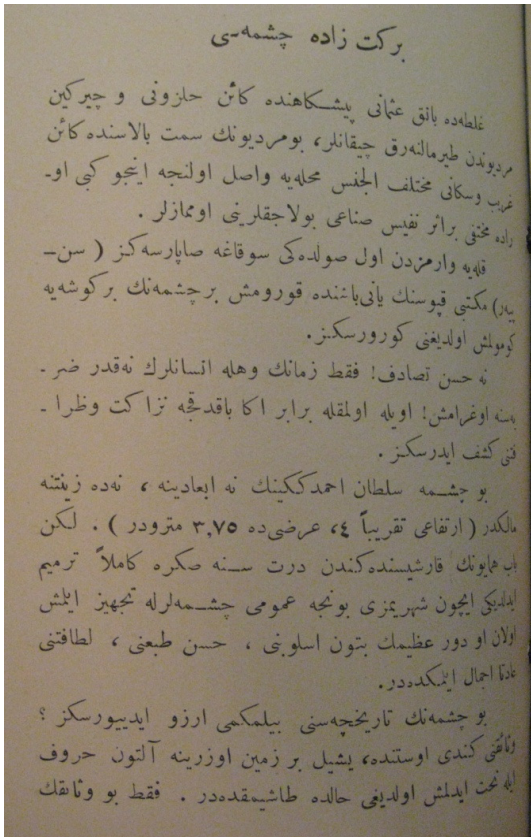 بركت زاده چشمه‌ـی
غلطه‌ده بانق عثمانی پیشـكاهنده كائن حلزونی و چیركین
مردیوندن طیرمالنه‌رق چیقانلر، بومردیونك سمت بالاسنده كائن
غریب وسكانی مختلف الجنس محله‌یه واصل اولنجه اینجو كبی او۔
راده مختفی براثر نفیس صناعی بولاجقلرینی اوممازلر .
قله‌یه وارمزدن اول صولده‌كی سوقاغه صاپارسه‌كز ( سن ـ
پیه‌ر) مكتبی قپوسنك یانی‌باشنده قورومش برچشمه‌نك بركوشه‌یه
كومولمش اولدیغنی كورورسكز.
نه حسن تصادف! فقط زمانك وهله انسانلرك نه‌قدر ضر ـ
به‌سنه اوغرامش! اویله اولمقله برابر اكا باقدقجه نزاكت وظرا ـ
فتنی كشف ایدرسكز .
بو چشـمه سلطان احمدككینك نه ابعادینه ، نه‌ده زینتنه
مالكدر ( ارتفاعی تقریباً ٤، عرضی‌ده ٣,٧٥ مترودر ) . لكن
باب همایونك قارشیسنده‌كندن درت سـنه صكره كاملاً ترمیم
ایدلدیكی ایچون شهریمزی بونجه عمومی چشـمه‌لرله تجهیز ایلمش
اولان او دور عظیمك بتون اسلوبنی ، حسن طبعنی ، لطافتنی
عادتا اجمال ایتمكده‌در.
بو چشمه‌نك تاریخچه‌سنی بیلمكمی آرزو ایدییورسكز ؟
وثائقنی كندی اوستنده، یشیل بر زمین اوزرینه آلتون حروف
ایله نحت ایدلمش اولدیغی حالده طاشیمقده‌در . فقط بو وثائقك